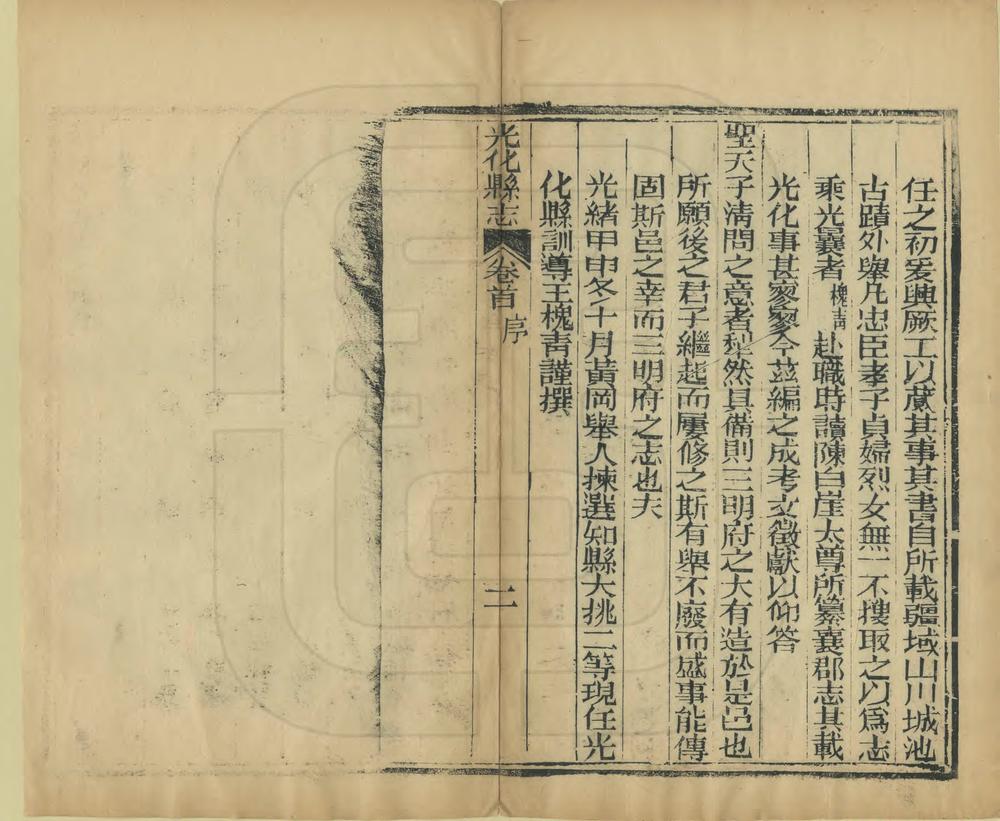 任之初爰興厥工以蕆其事其書自所載疆域山川城池
古蹟外舉凡忠臣孝子貞婦烈女無一不搜取之以爲志
乘光曩者槐青赴職時讀陳白崖太尊所纂襄郡志其載
光化事甚寥寥今茲編之成考文徵獻以仰答
聖天子清問之意者犁然具備則三明府之大有造於是邑也
所願後之君子繼起而屢修之斯有舉不廢而盛事能傳
固斯邑之幸而三明府之志也夫
光緒甲申冬十月黃岡舉人揀選知縣大挑二等現任光
化縣訓導王槐青謹撰
光化縣志 卷首 序 二